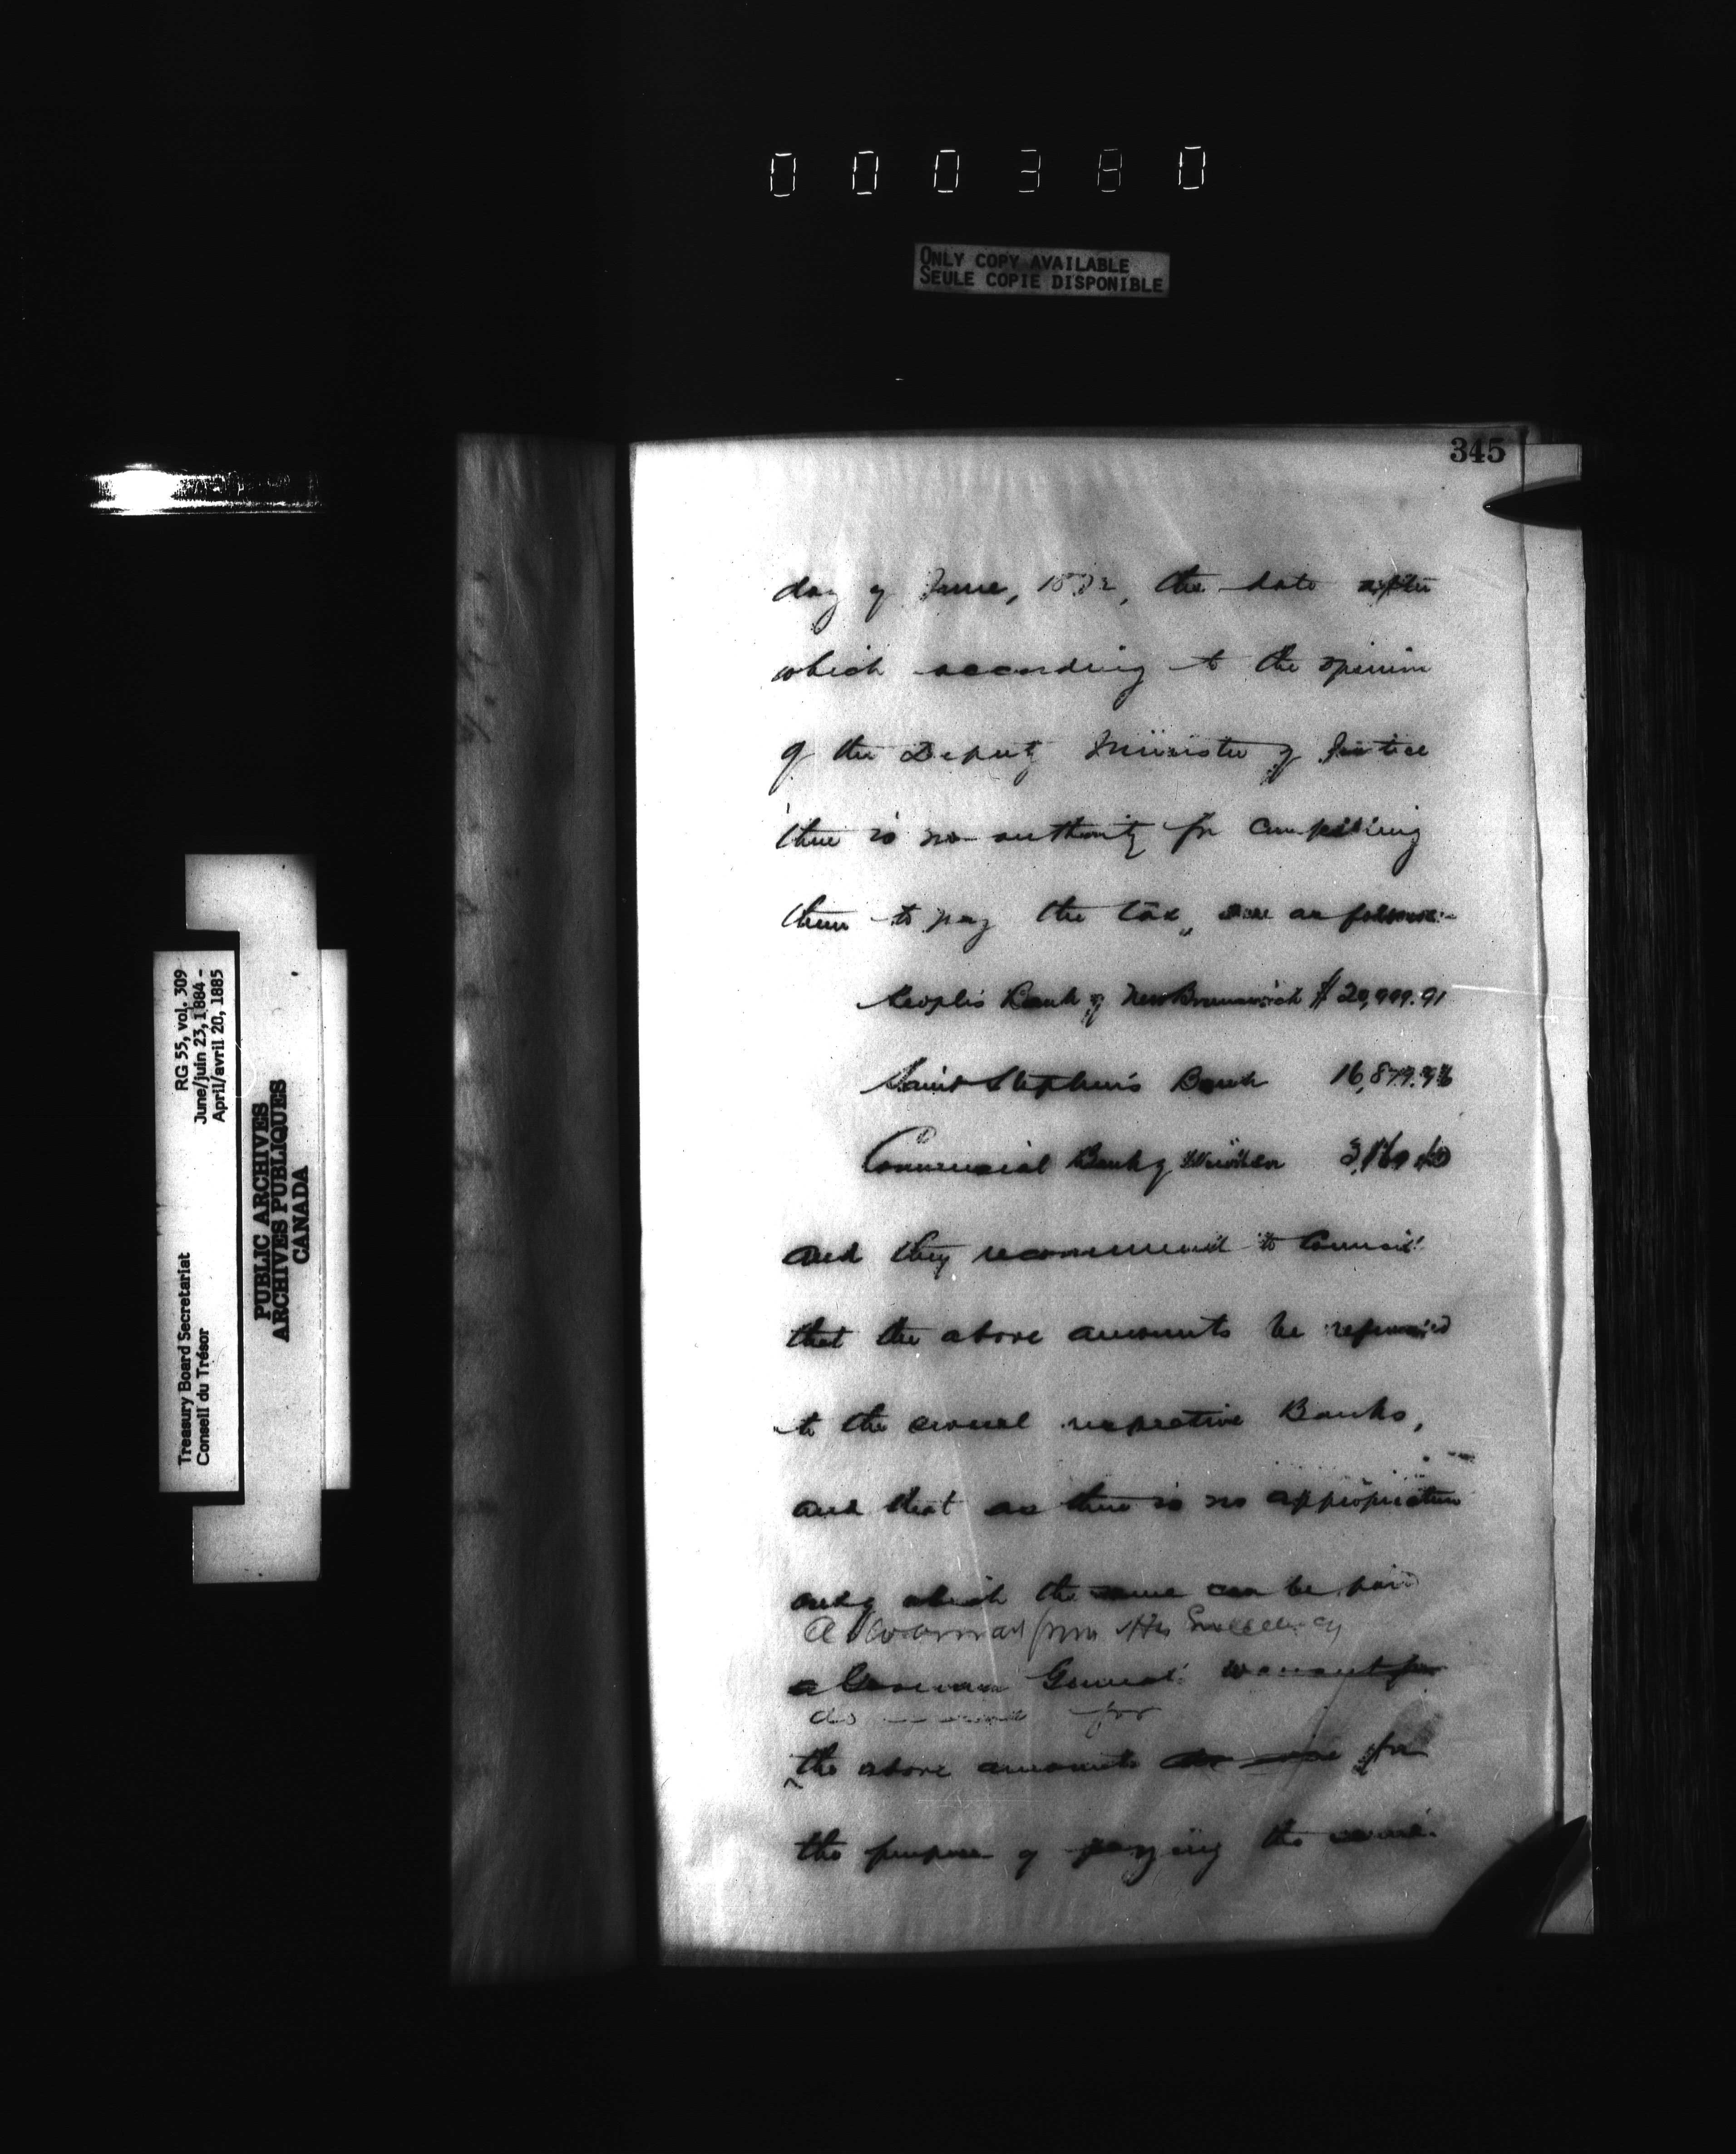 000380
ONLY COPY AVAILABLE
SEULE COPIE DISPONIBLE
345
day of June, 1872, the date after
which according to the opinion
of the Deputy Minister of Justice
there is no authority for compelling
them to pay the tax, are as follows:-
Peoples Bank of New Brunswick $ 20,999.91
Saint Stephen's Bank 16,879.96
Commercial Bank of Windsor
and they recommend to Council
that the above amounts be refunded
to the several respective Banks,
and that as there is no appropriation
out of which the same can be paid
a Warrant from His Excellency
a Governor General's warrant for
do issue for
the above amounts do issue for
the purpose of paying the same.
RG 55, vol. 309
June/juin 23, 1884 -
April/avril 20, 1885
Treasury Board Secretariat
Conseil du Trésor
PUBLIC ARCHIVES
ARCHIVES PUBLIQUES
CANADA